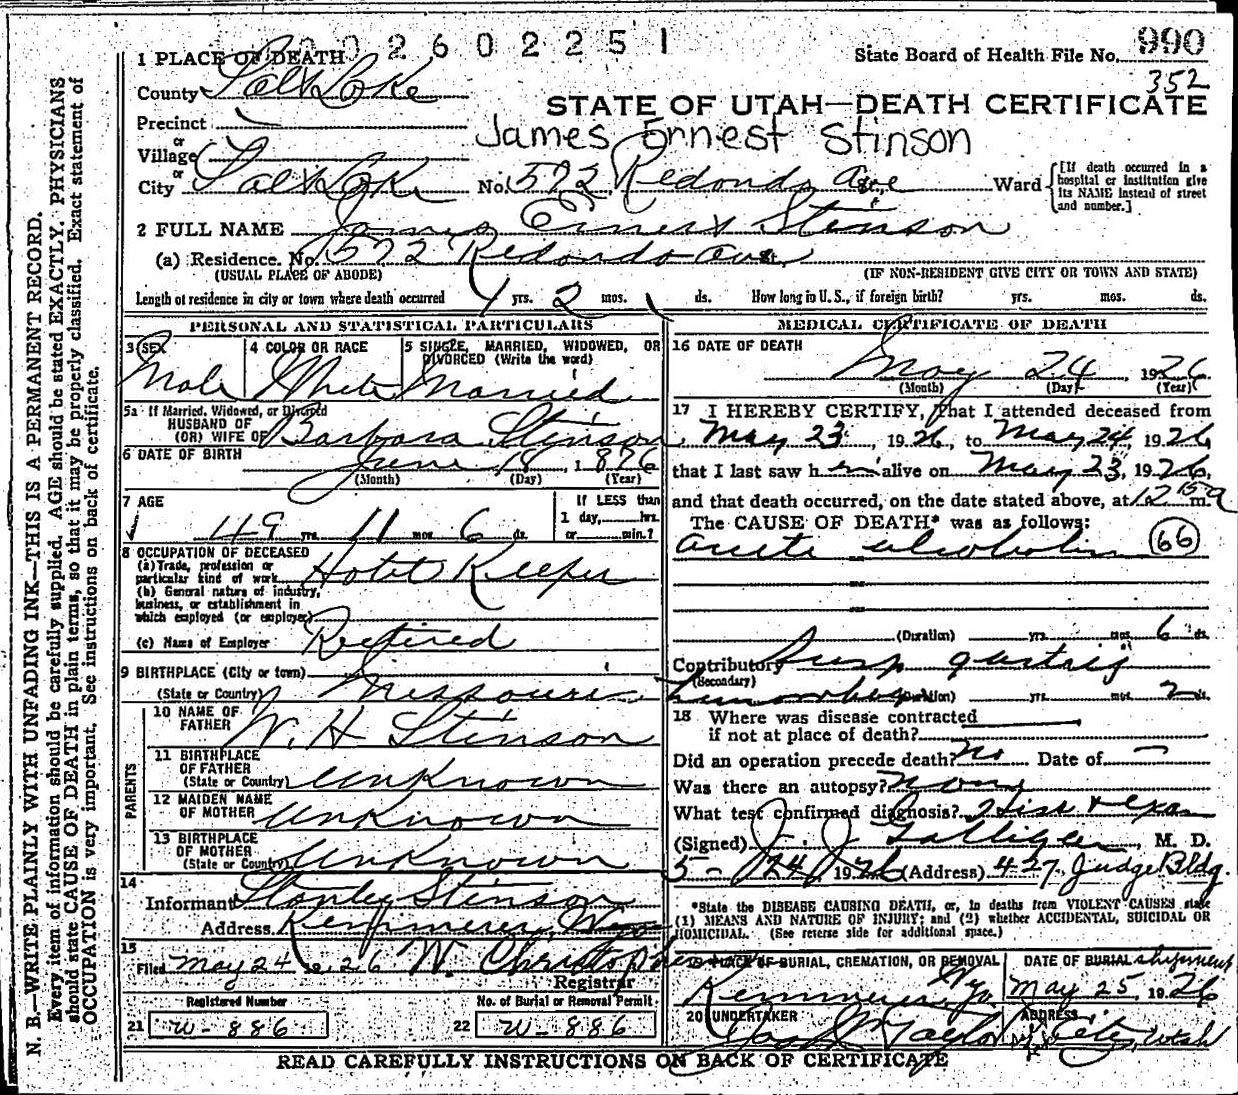 N. B.—WRITE PLAINLY WITH UNFADING INK—THIS IS A PERMANENT RECORD.
Every item of information should be carefully supplied. AGE should be stated EXACTLY. PHYSICIANS
should state CAUSE OF DEATH in plain terms, so that it may be properly classified. Exact statement of
OCCUPATION is very important. See instructions on back of certificate.
2602251
State Board of Health File No. 990
352
1 PLACE OF DEATH
County Salt Lake
STATE OF UTAH—DEATH CERTIFICATE
Precinct
James Ernest Stinson
or
Village
or
City Salt Lake No. 572 Redondo Ave Ward
[If death occurred in a
hospital or institution give
its NAME instead of street
and number.]
2 FULL NAME James Ernest Stinson
(a) Residence. No. 572 Redondo Ave
(USUAL PLACE OF ABODE) (IF NON-RESIDENT GIVE CITY OR TOWN AND STATE)
Length of residence in city or town where death occurred yrs. 2 mos. ds. How long in U. S., if foreign birth? yrs. mos. ds.
PERSONAL AND STATISTICAL PARTICULARS
3 SEX 4 COLOR OR RACE 5 SINGLE, MARRIED, WIDOWED, OR
DIVORCED (Write the word)
Male White Married
5a If Married, Widowed, or Divorced
HUSBAND OF
(OR) WIFE OF Barbara Stinson
6 DATE OF BIRTH June 18, 1876
(Month) (Day) (Year)
7 AGE If LESS than
1 day,....hrs.
49 yrs. 11 mos. 6 ds. or....min.?
8 OCCUPATION OF DECEASED
(a) Trade, profession or
particular kind of work Hotel Keeper
(b) General nature of industry,
business, or establishment in
which employed (or employer)
(c) Name of Employer Retired
9 BIRTHPLACE (City or town)
(State or Country) Missouri
PARENTS
10 NAME OF
FATHER W. H. Stinson
11 BIRTHPLACE
OF FATHER
(State or Country) Unknown
12 MAIDEN NAME
OF MOTHER Unknown
13 BIRTHPLACE
OF MOTHER
(State or Country) Unknown
14
Informant Stanley Stinson
Address Kemmerer, Wyo
15
Filed May 24 1926 W. Christopher
Registrar
Registered Number No. of Burial or Removal Permit
21 W-886 22 W-886
MEDICAL CERTIFICATE OF DEATH
16 DATE OF DEATH
May 24, 1926
(Month) (Day) (Year)
17 I HEREBY CERTIFY, That I attended deceased from
May 23, 1926, to May 24, 1926
that I last saw him alive on May 23, 1926,
and that death occurred, on the date stated above, at 12 15 a m.
The CAUSE OF DEATH* was as follows:
acute alcoholism (66)
(Duration) yrs. mos. 6 ds.
Contributory gastric
(Secondary)
hemorrhage (Duration) yrs. mos. 2 ds.
18 Where was disease contracted
if not at place of death?
Did an operation precede death? No Date of —
Was there an autopsy? None
What test confirmed diagnosis? Hist & exam
(Signed) J. J. Galligan, M. D.
5-24 1926 (Address) 427 Judge Bldg.
*State the DISEASE CAUSING DEATH, or, in deaths from VIOLENT CAUSES state
(1) MEANS AND NATURE OF INJURY; and (2) whether ACCIDENTAL, SUICIDAL OR
HOMICIDAL. (See reverse side for additional space.)
19 PLACE OF BURIAL, CREMATION, OR REMOVAL DATE OF BURIAL shipment
Kemmerer, Wyo May 25, 1926
20 UNDERTAKER ADDRESS
Taylor City, Utah
READ CAREFULLY INSTRUCTIONS ON BACK OF CERTIFICATE